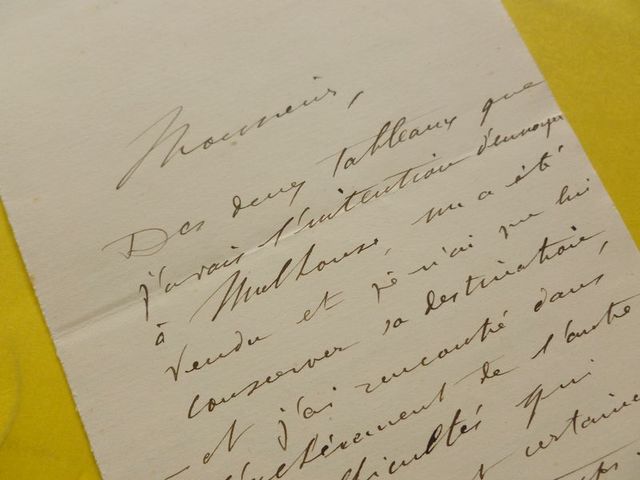 Monsieur,
Des deux tableaux que
j'avais l'intention d'envoyer
à Mulhouse, un a été
vendu et je n'ai pu lui
conserver sa destination,
et j'ai rencontré dans
l'achèvement de l'autre
difficultés qui
certaine